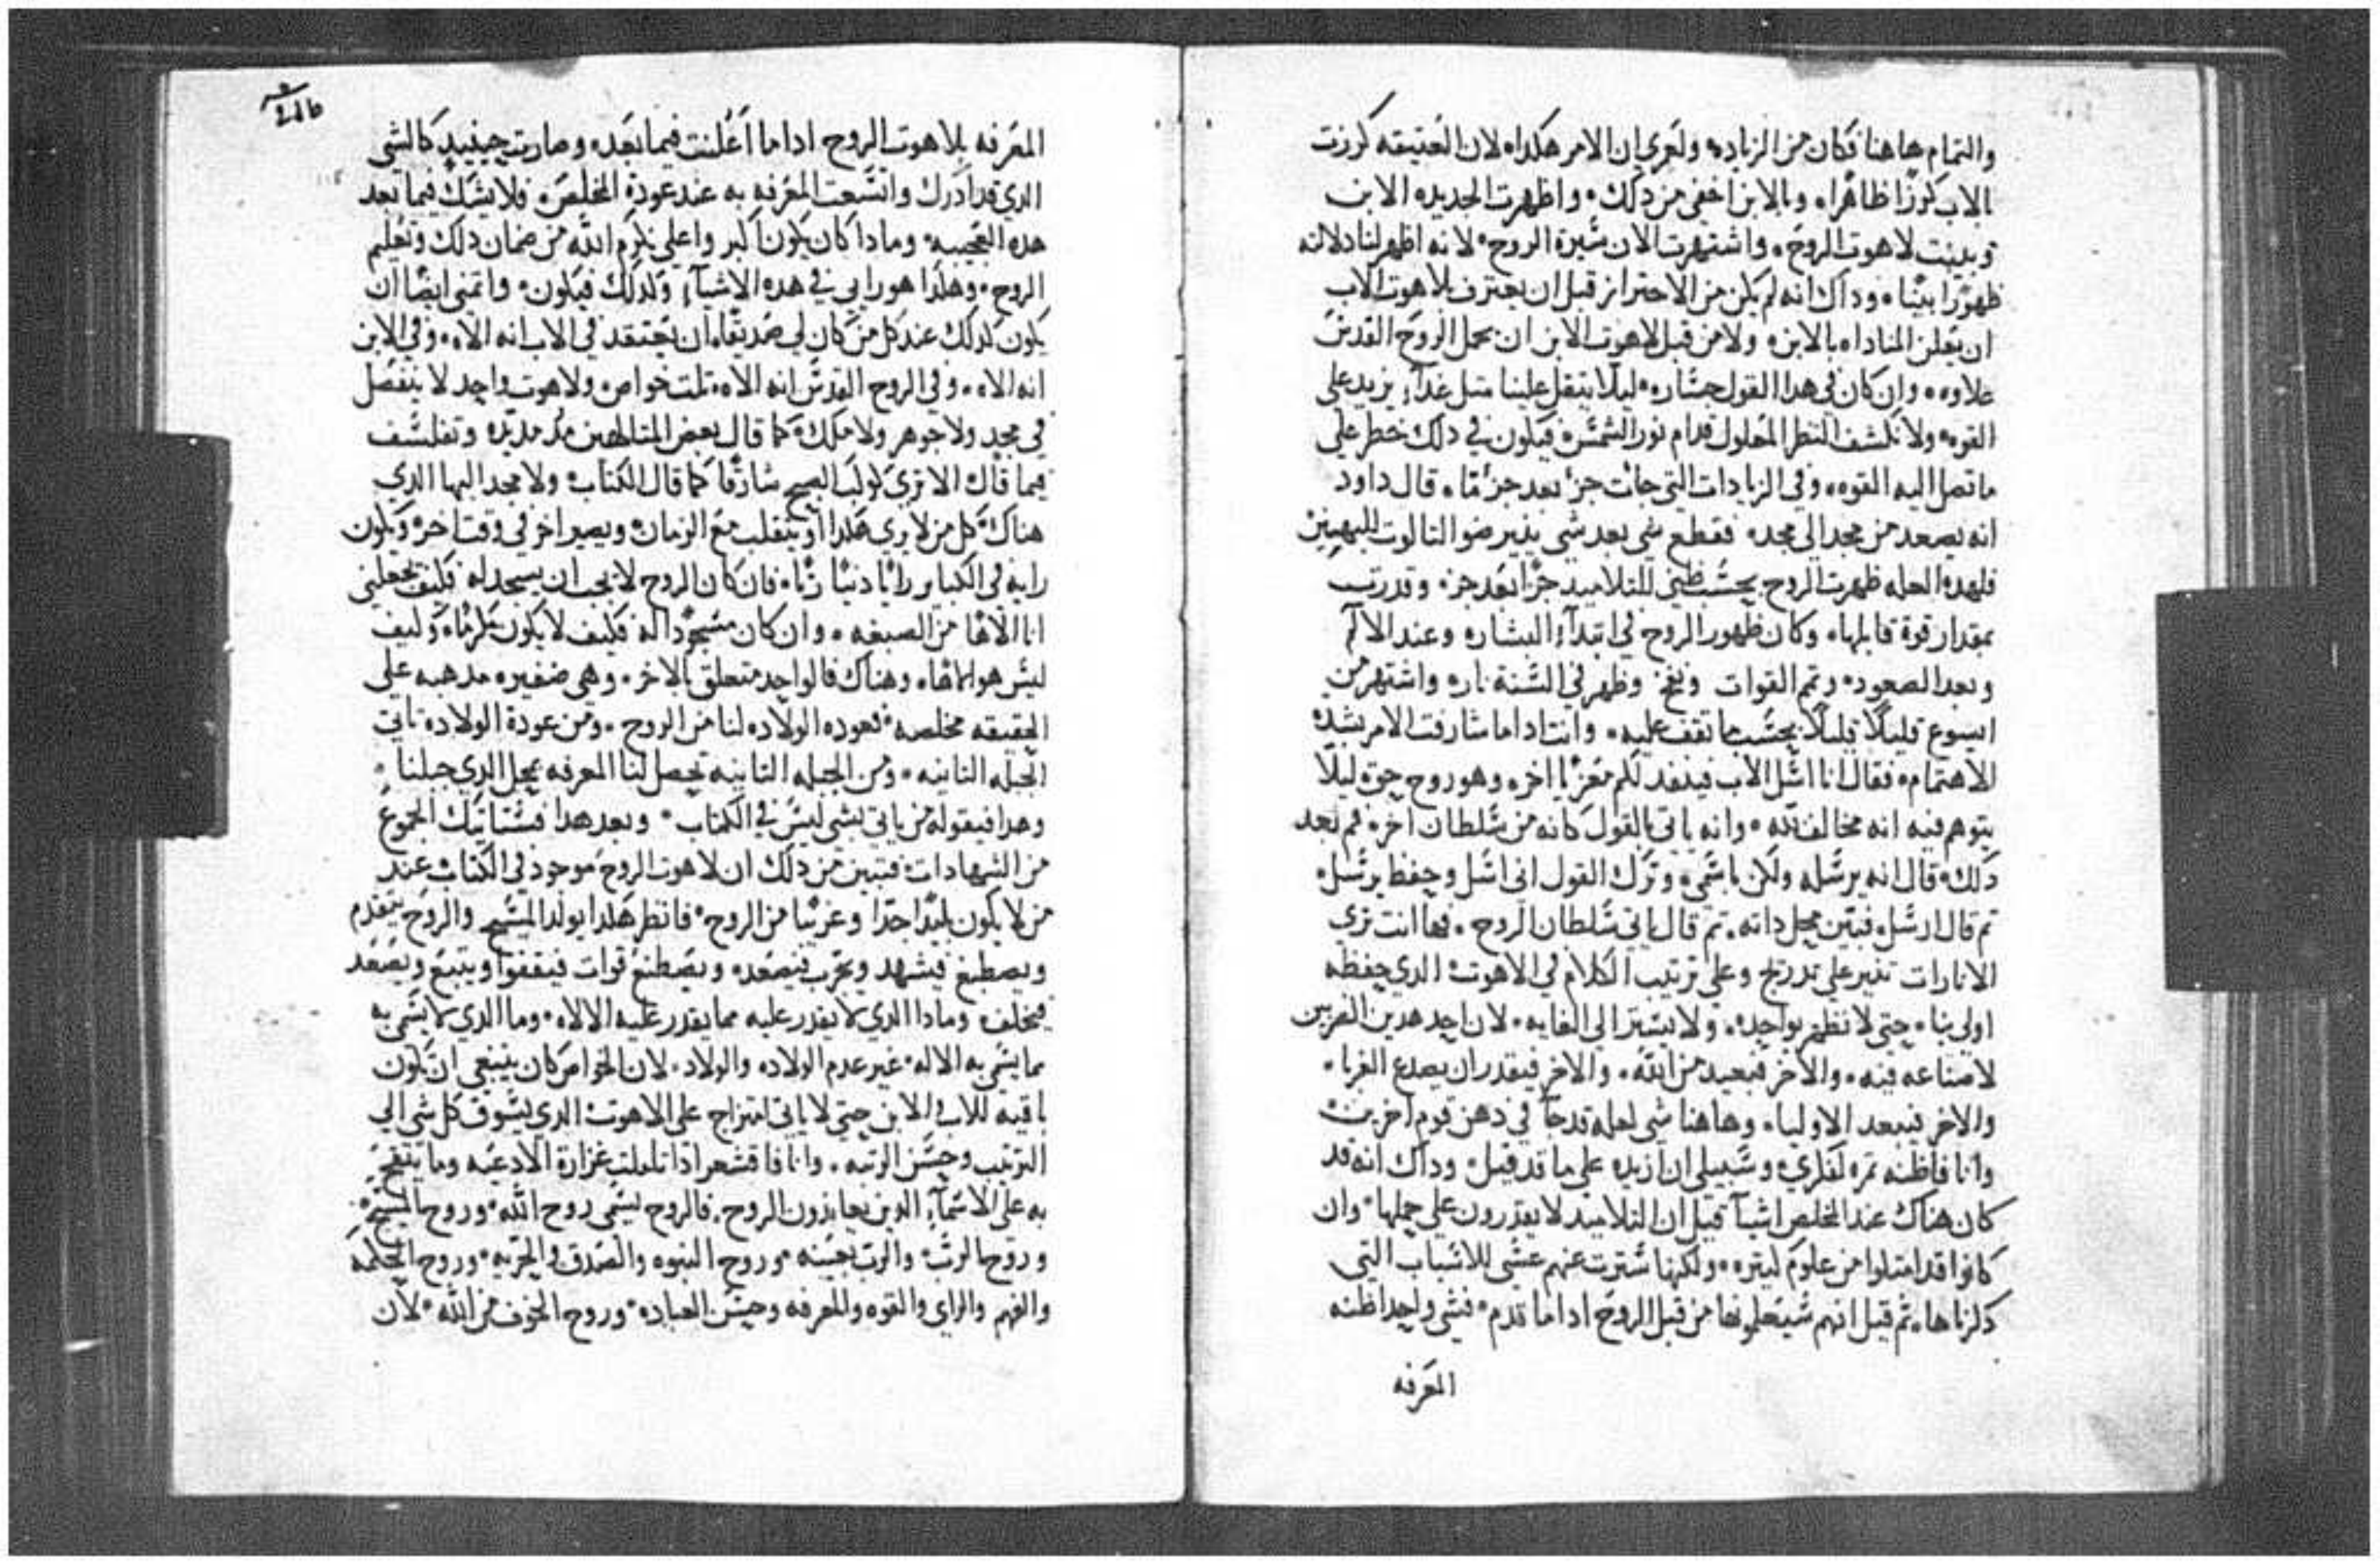 والتمام هاهنا فكان من الزياده ولعمري ان الامر هكداه لان العتيقه كرزت
الاب كرزًا ظاهرًا، وبالابن اخفى من دلك، واظهرت الجديده الابن
وبينت لاهوت الروح، واشتهرت الان سيرة الروح، لانه اظهر لنا دلالته
ظهورًا بينًا، وداك انه لم يكن من الاحتراز قبل ان يعترف بلاهوت الاب
ان يعلن المناداه بالابن، ولا من قبل لاهوت الابن ان يحمل الروح القدس
علاوه، وان كان في هدا القول جساره، ليلا يتقل علينا متل غدآء يزيد على
القوه ولا نكشف النظر المعلول قدام نور الشمس فيكون في دلك خطر على
ما تصل اليه القوه، وفي الزيادات التي جات جزءًا بعد جزء ما، قال داود
انه يصعد من مجد الى مجد، فقطع شي بعد شي ينير ضو التالوت للبهيين
فلهده العله ظهرت الروح بحسب ظني للتلاميد جزًا بعد جزء وقدرت
بمقدار قوة قابلها، وكان ظهور الروح في ابتدآء البشاره وعند الالام
وبعد الصعوده وتمم القوات ونفخ وظهر في السنة ناره واشتهر من
ايسوع قليلًا قليلًا بحسب ما تقف عليه، وانت ادا ما شارفت الامر بشدة
الاهتمام، فقال انا اسل الاب فينفد لكم معزيًا اخر، وهو روح حق، ليلًا
يتوهم فيه انه مخالف لله، وانه ياتي بالقول كانه من سلطان اخر، تم بعد
دلك، قال انه يرسله ولكن باسمي، وترك القول اني اسل وحفظ يرسل،
تم قال ارسل، فبين محل داته، تم قال ياتي سلطان الروح، فها انت ترى
الانارات تنير على تدريج وعلى ترتيب الكلام في الاهوت، الدي حفظه
اولى بنا، حتى لا نظهر بواحده، ولا يستر الى الغايه، لان احد هدين الضربين
لا صناعه فيه، والاخر فبعيد من الله، والاخر فيقدر ان يصدع الغربا،
والاخر فيبعد الاوليا، وهاهنا شي لعله قد جآ في دهن قوم اخرين
وانا فاظنه تمره لفكري، وسبيلي ان ازيده على ما قد قيل، وداك انه قد
كان هناك عند المخلص اشيآ قيل ان التلاميد لا يقدرون على حملها، وان
كانوا قد امتلوا من علوم كتيره، ولكنها سترت عنهم عسى للاسباب التي
دكرناها، تم قيل انهم سيعلمونها من قبل الروح ادا ما قدم، فشي واحدا ظنه
المعرفه
المعرفه بلاهوت الروح ادا ما اعلنت فيما بعده وصارت حينيد كالشي
الدي قد ادرك واتسعت المعرفه به عند عودة المخلص، فلا يشك فيما بعد
هده العجيبه، ومادا كان يكون اكبر واعلى بكرم الله من ضمان دلك وتعليم
الروح، وهكدا هو رايي في هده الاشيآء وكدلك فيكون، واتمنى ايضًا ان
يكون كدلك عند كل من كان لي صديقًا، ان يعتقد في الاب انه الاه، وفي الابن
انه الاه، وفي الروح القدس انه الاه، تلت خواص ولاهوت واحد لا ينفصل
في مجد ولا جوهر ولا ملك، كما قال بعض المتالهين مند مديده وتفلسف
فيما قال الا ترى كوكب الصبح شارقًا كما قال الكتاب، ولا مجد البها الدي
هناك، كل من لا يرى هكدا او يتقلب مع الزمان، ويصير اخر في وقت اخر، ويكون
رايه في الكباير رايًا دنيًا زيًا، فان كان الروح لا يجب ان يسجد له، فكيف يجعلني
انا الاهًا من الصبغه، وان كان مسجودًا له فكيف لا يكون مكرمًا، وكيف
ليس هو الاهًا، وهناك فالواحد متعلق بالاخر، وهي ضفيره مدهبه على
الحقيقه مخلصه، فعوده الولاده لنا من الروح، ومن عودة الولاده تاتي
الجبله التانيه، ومن الجبله التانيه تحصل لنا المعرفه بمحل الدي جبلنا،
وهدا فيقوله من ياتي بشي ليس في الكتاب، وبعد هدا فستاتيك الجموع
من الشهادات، فتبين من دلك ان لاهوت الروح موجود في الكتاب عند
من لا يكون بليدًا جدًا وغريبًا من الروح، فانظر هكدا، يولد المسيح والروح يتقدم
ويصطبغ فيشهد ويجرب فيصعده ويصطنع قوات فيقفوا ويتبع ويصعد
فيخلف، ومادا الدي لا يقدر عليه مما يقدر عليه الالاه، وما الدي لا يسمى به
مما يسمى به الاله، غير عدم الولاده والولاد، لان الخواص كان ينبغي ان تكون
باقيه للاب والابن حتى لا ياتي امتزاج على الاهوت، الدي يسوق كل شي الى
الترتيب وحسن الرتبه، وانا فاقشعر ادا تاملت غزارة الادعيه وما يتقحم
به على الاسمآء الدين يعاندون الروح، فالروح يسمى روح الله، وروح المسيح،
وروح الرب، والرب بعينه، وروح البنوه والصدق والحريه، وروح الحكمه
والفهم والراي والقوه والمعرفه وحسن العباده، وروح الخوف من الله، لان